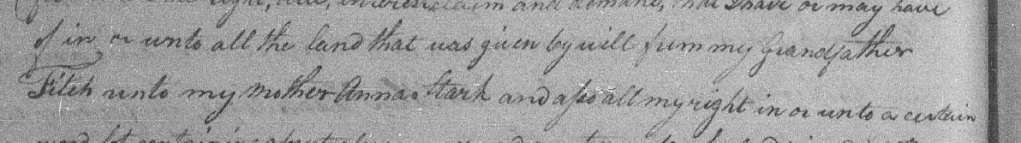 right, title, interest, claim and demand, that I have or may have
of in or unto all the land that was given by will from my Grandfather
Fitch unto my mother Anna Stark and also all my right in or unto a certain
wood lot containing about